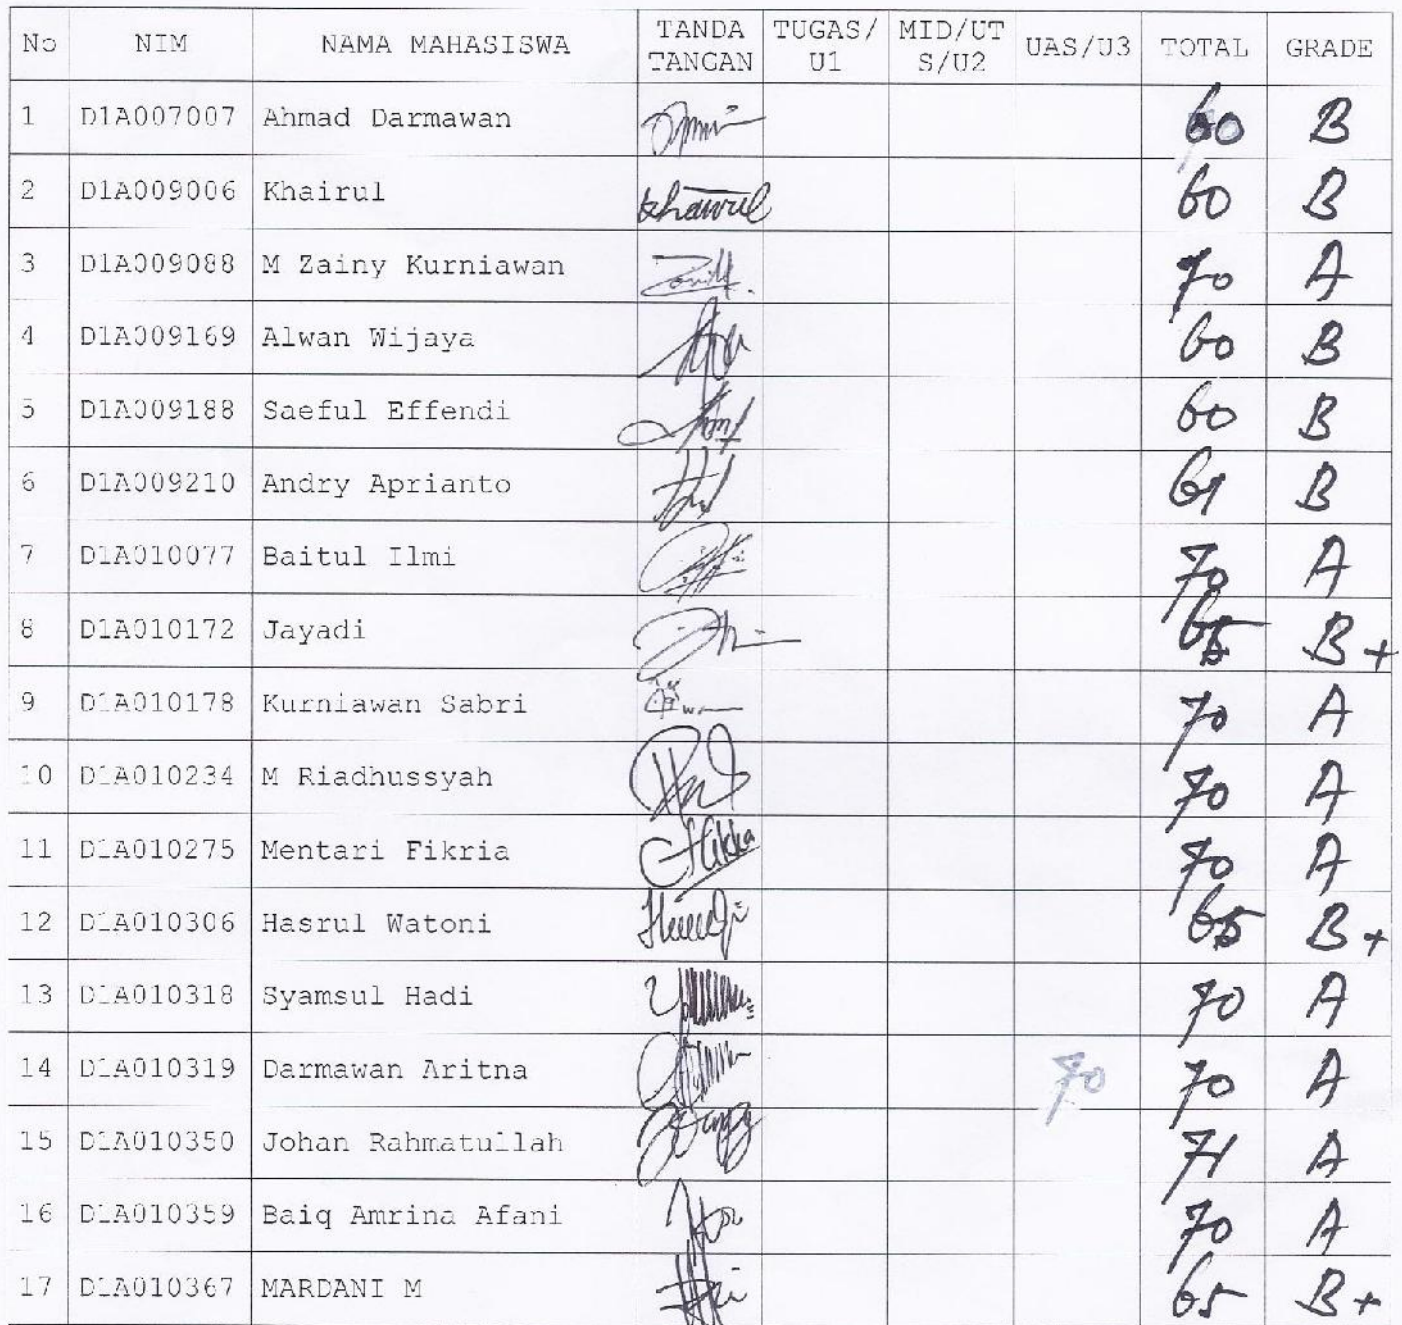 No NIM NAMA MAHASISWA TANDA TANGAN TUGAS/U1 MID/UTS/U2 UAS/U3 TOTAL GRADE
1 D1A007007 Ahmad Darmawan 60 B
2 D1A009006 Khairul Khairul 60 B
3 D1A009088 M Zainy Kurniawan 70 A
4 D1A009169 Alwan Wijaya 60 B
5 D1A009188 Saeful Effendi 60 B
6 D1A009210 Andry Aprianto 61 B
7 D1A010077 Baitul Ilmi 70 A
8 D1A010172 Jayadi 65 B+
9 D1A010178 Kurniawan Sabri 70 A
10 D1A010234 M Riadhussyah 70 A
11 D1A010275 Mentari Fikria 70 A
12 D1A010306 Hasrul Watoni 65 B+
13 D1A010318 Syamsul Hadi 70 A
14 D1A010319 Darmawan Aritna 70 70 A
15 D1A010350 Johan Rahmatullah 71 A
16 D1A010359 Baiq Amrina Afani 70 A
17 D1A010367 MARDANI M 65 B+